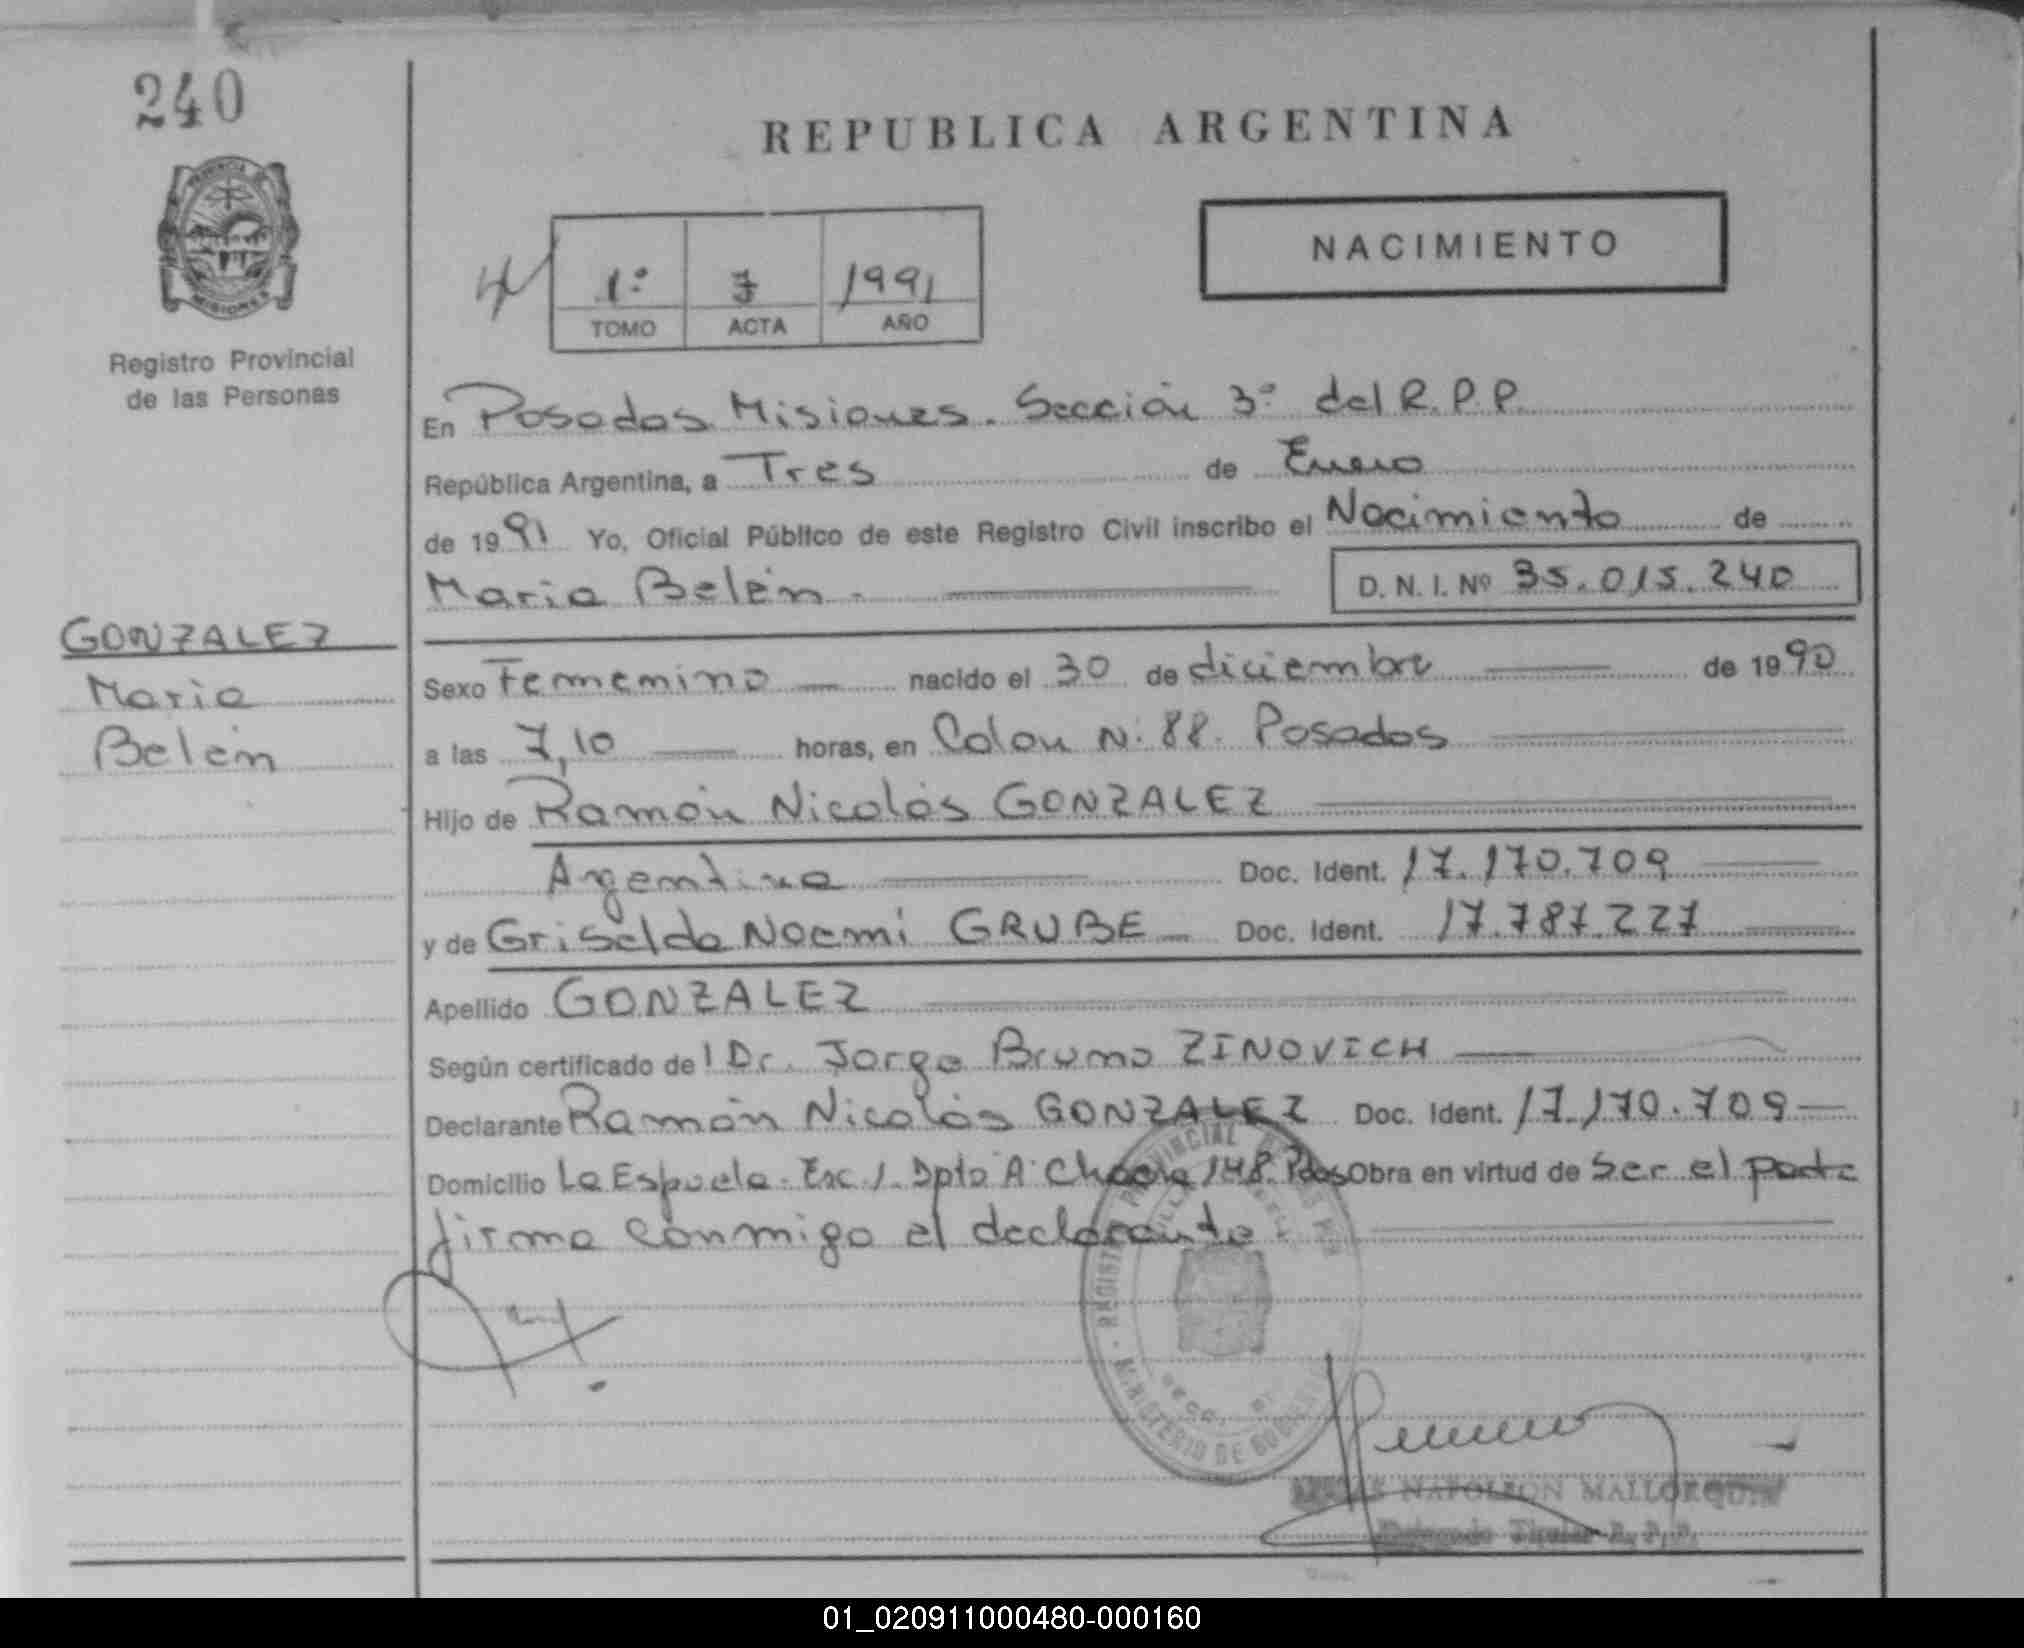 240
REPUBLICA ARGENTINA
NACIMIENTO
1º 7 1991
TOMO ACTA AÑO
PROVINCIA DE
MISIONES
Registro Provincial
de las Personas
En Posadas Misiones. Sección 3º del R.P.P.
República Argentina, a Tres de Enero
de 1991 Yo, Oficial Público de este Registro Civil inscribo el Nacimiento de
María Belén. D. N. I. Nº 35.015.240
GONZALEZ
María
Belén
Sexo Femenino nacido el 30 de diciembre de 1990
a las 7,10 horas, en Colon Nº 88. Posadas
Hijo de Ramón Nicolás GONZALEZ
Argentina Doc. Ident. 17.170.709
y de Griselda Noemí GRUBE Doc. Ident. 17.787.227
Apellido GONZALEZ
Según certificado del Dr. Jorge Bruno ZINOVICH
Declarante Ramón Nicolás GONZALEZ Doc. Ident. 17.170.709
Domicilio La Espuela. Esc. 1. Dpto A. 148. Pdas Obra en virtud de Ser el padre
firma conmigo el declarante
MINISTERIO DE GOBIERNO
NAPOLEON MALLORQUIN
Titular R.P.P.
01_020911000480-000160